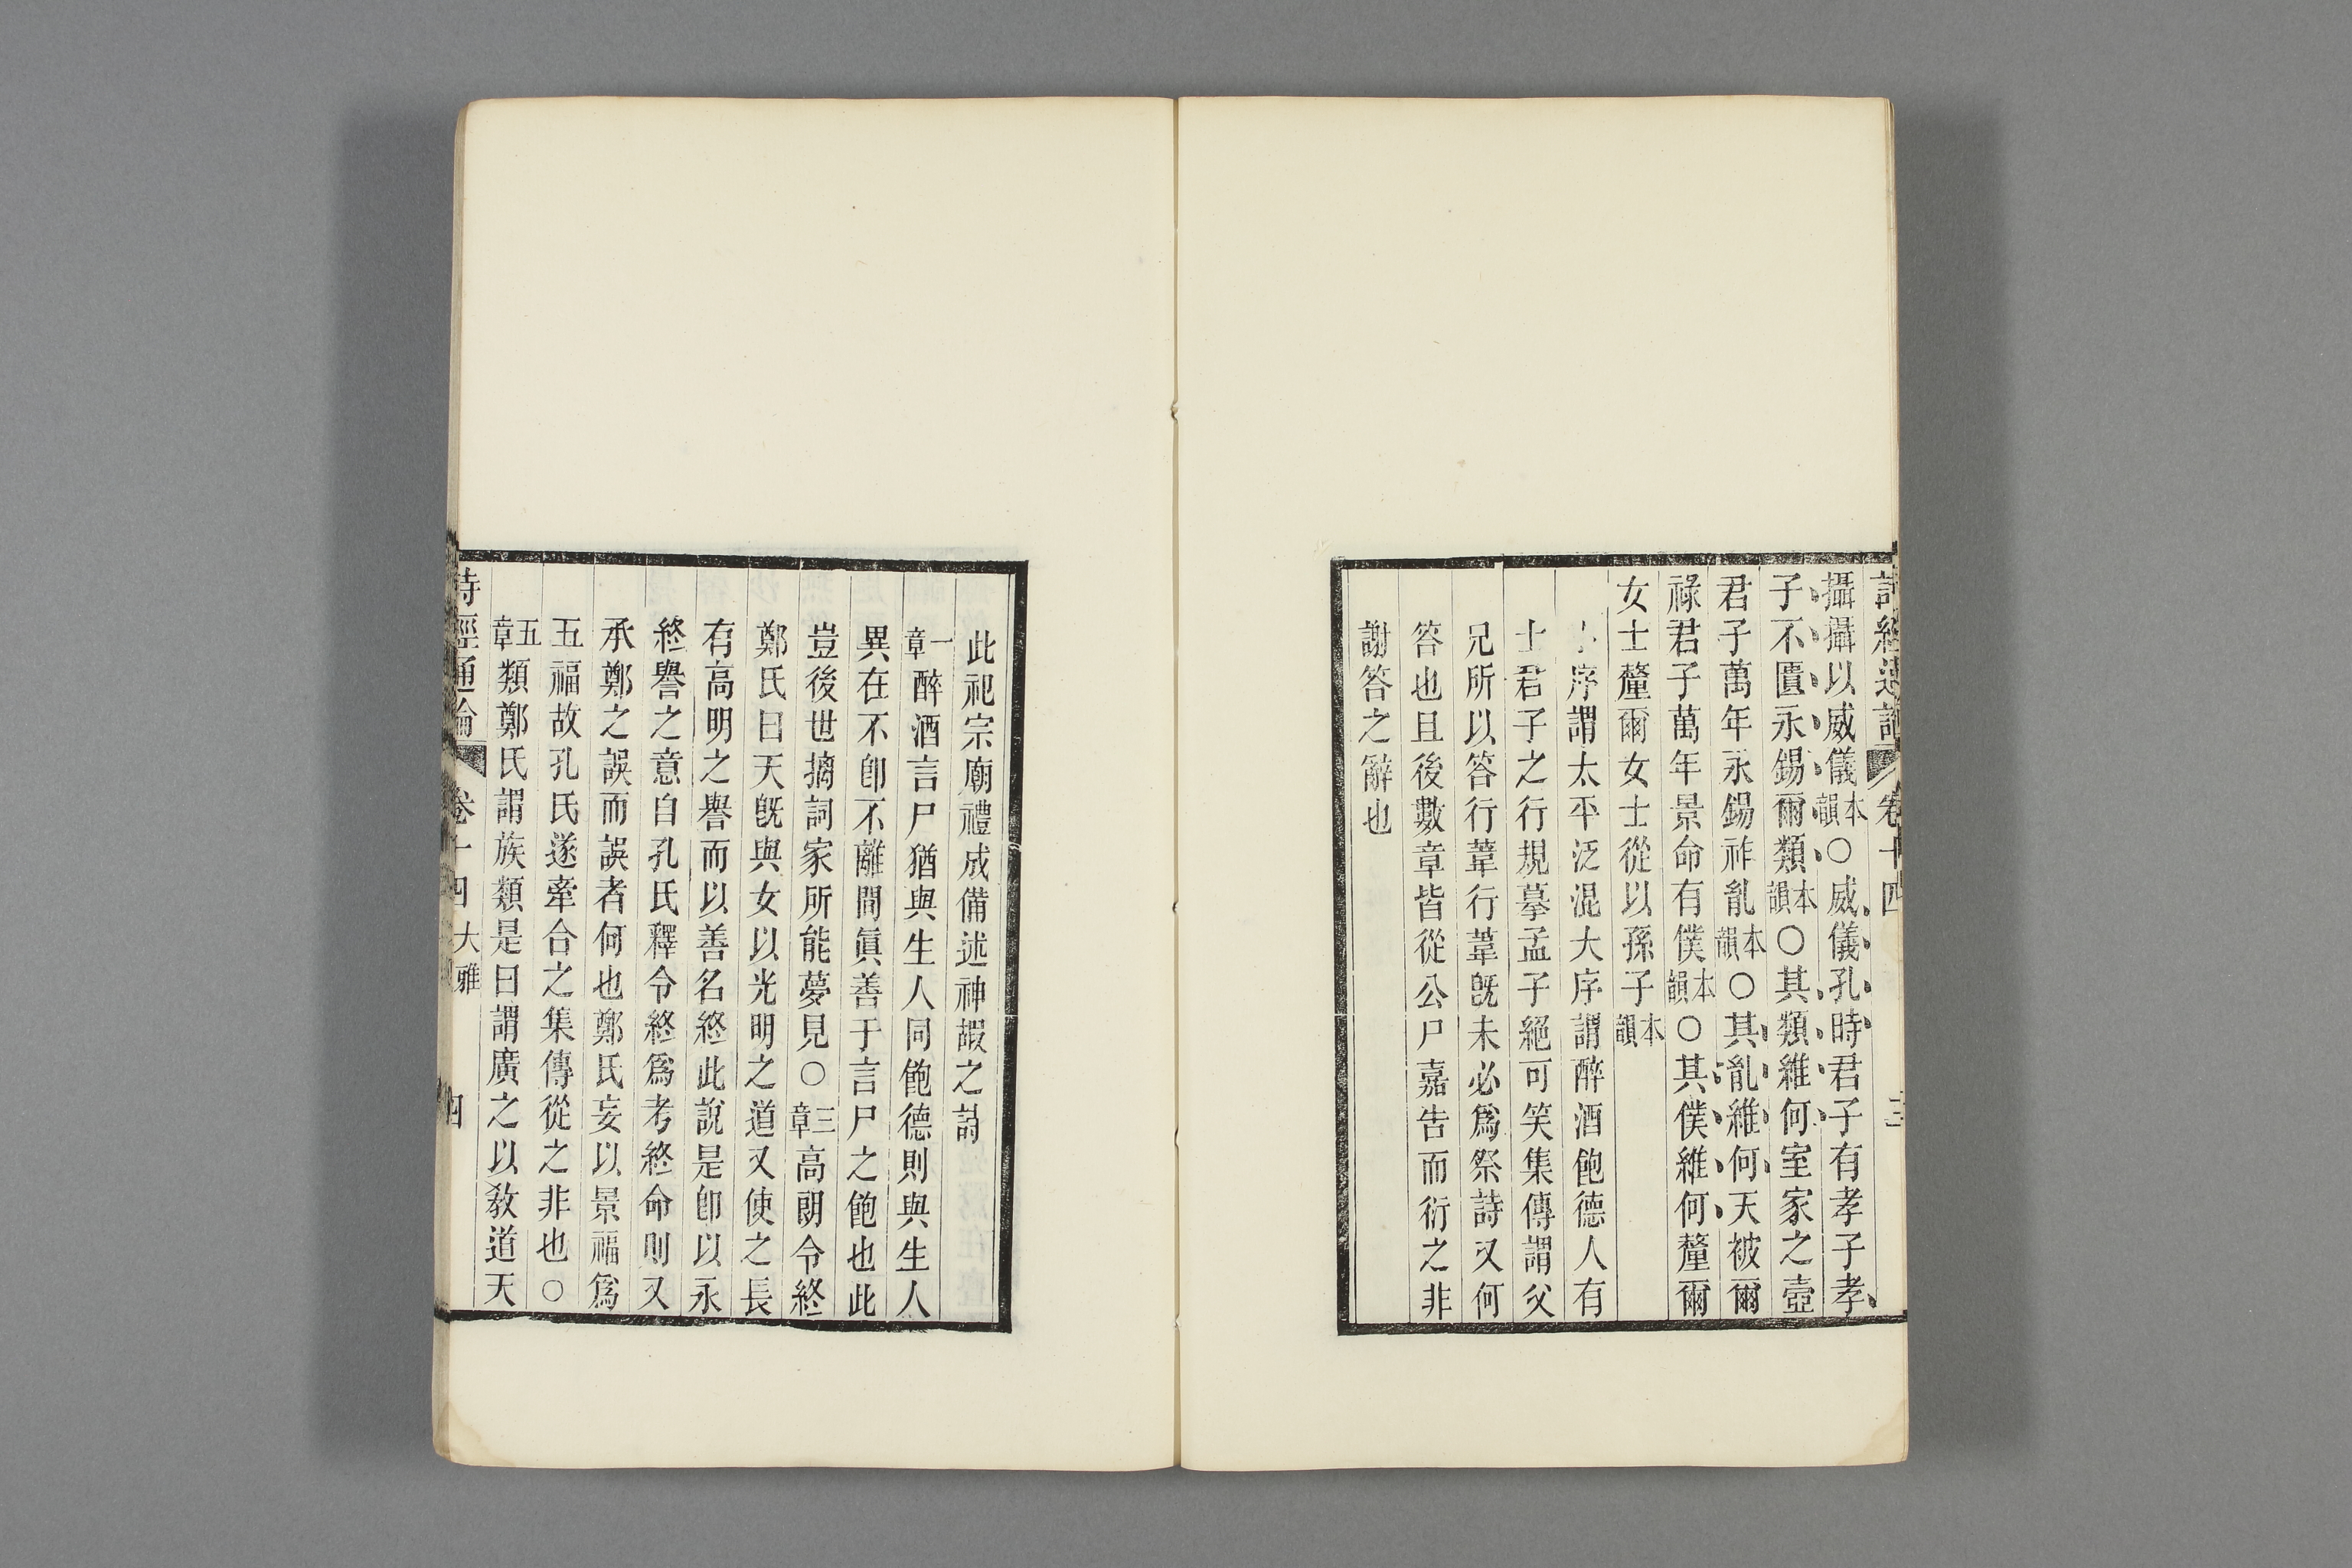 詩經通論 卷十四 三
攝攝以威儀本韻○威儀孔時君子有孝子孝
子不匱永錫爾類本韻○其類維何室家之壼
君子萬年永錫祚胤本韻○其胤維何天被爾
祿君子萬年景命有僕本韻○其僕維何釐爾
女士釐爾女士從以孫子本韻
序謂太平泛混大序謂醉酒飽德人有
士君子之行規摹孟子絕可笑集傳謂父
兄所以答行葦行葦旣未必爲祭詩又何
答也且後數章皆從公尸嘉告而衍之非
謝答之辭也
此祀宗廟禮成備述神嘏之詩
一章醉酒言尸猶與生人同飽德則與生人
異在不卽不離間眞善于言尸之飽也此
豈後世摛詞家所能夢見○三章高朗令終
鄭氏曰天旣與女以光明之道又使之長
有高明之譽而以善名終此說是卽以永
終譽之意自孔氏釋令終爲考終命則又
承鄭之誤而誤者何也鄭氏妄以景福爲
五福故孔氏遂牽合之集傳從之非也○
五章類鄭氏謂族類是曰謂廣之以敎道天
詩經通論 卷十四大雅 四